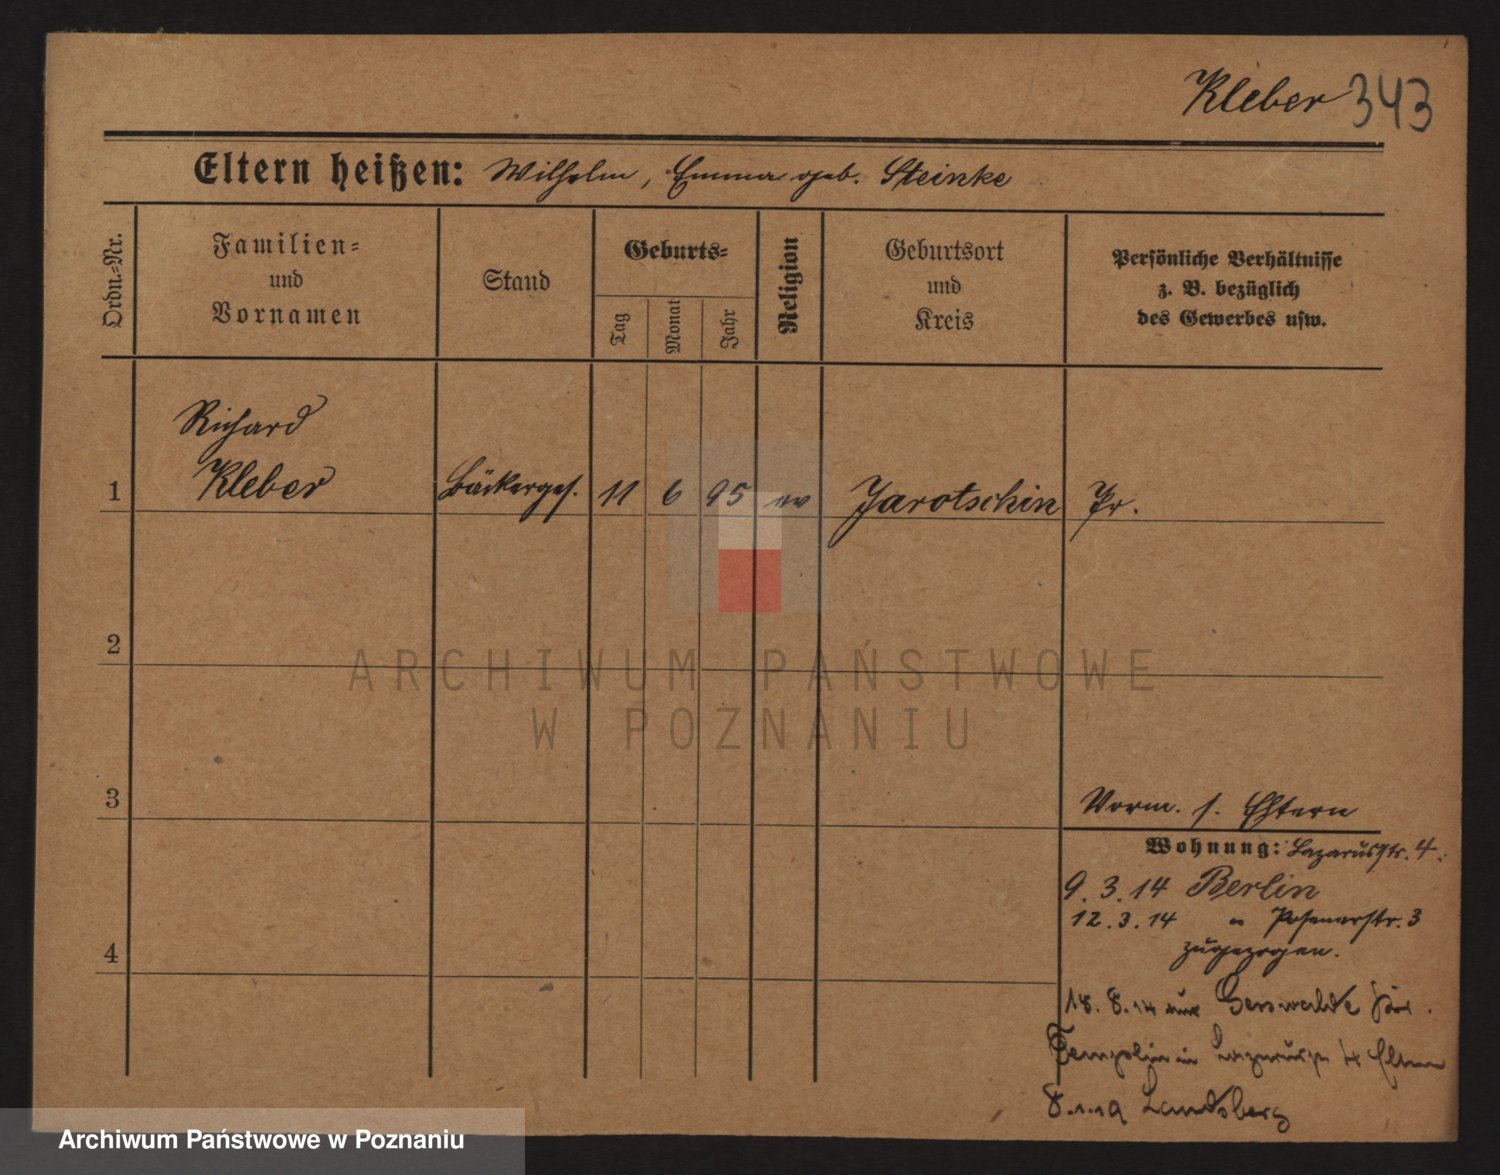 Kleber 343
Eltern heißen: Wilhelm, Emma geb. Steinke
Ordn.-Nr.
Familien-
und
Vornamen
Stand
Geburts-
Tag
Monat
Jahr
Religion
Geburtsort
und
Kreis
Persönliche Verhältnisse
z. B. bezüglich
des Gewerbes usw.
Richard
1 Kleber Bäckerges. 11 6 95 ev Jarotschin Pr.
2
3
Vorm. s. Eltern
Wohnung: Lazarusstr. 4.
9.3.14 Berlin
12.3.14 " Posenerstr. 3
zugezogen.
4
18.8.14 aus Gerswalde
Templin in Eltern
8.1.19 Landsberg
ARCHIWUM PAŃSTWOWE
W POZNANIU
Archiwum Państwowe w Poznaniu